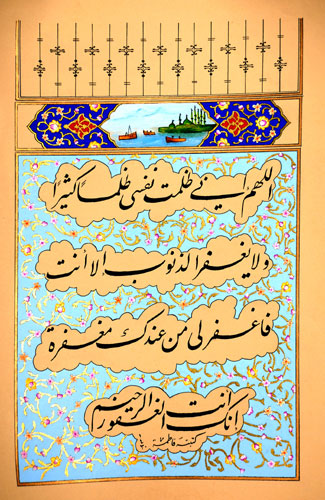 اللهم إني ظلمت نفسي ظلماً كثيرا
ولا يغفر الذنوب إلا أنت
فاغفر لي من عندك مغفرة
إنك أنت الغفور الرحيم
كتبته فاطمة